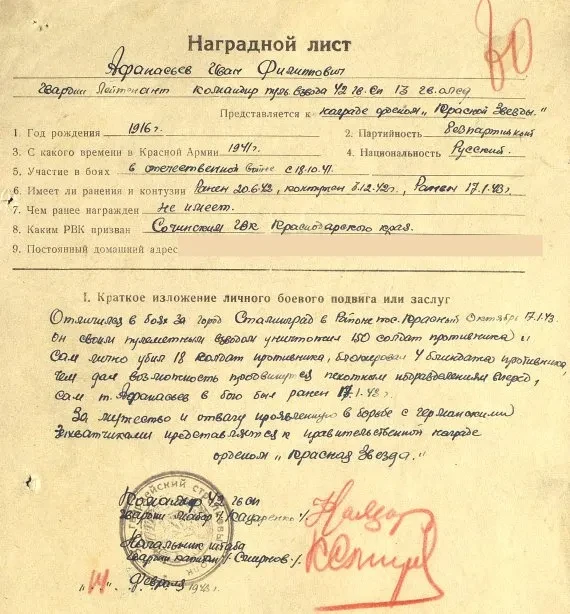 Наградной лист
Афанасьев Иван Филиппович
Гвардии Лейтенант Командир пул. взвода 42 гв. сп 13 гв. опсд
Представляется к награде орденом „Красной Звезды."
1 Год рождения 1916 г. 2. Партийность беспартийный
3. С какого времени в Красной Армии 1941 г. 4. Национальность Русский.
5. Участие в боях в отечественной войне с 18.10.41
6. Имеет ли ранения и контузии Ранен 20.6.42, контужен 5.12.42 г., Ранен 17.1.43 г.
7. Чем ранее награжден Не имеет.
8. Каким РВК призван Сочинским ГВК Краснодарского края.
9. Постоянный домашний адрес
I. Краткое изложение личного боевого подвига или заслуг
Отличился в боях за город Сталинград в Районе пос. Красный Октябрь 17.1.43.
он своим пулеметным взводом уничтожил 150 солдат противника
Сам лично убил 18 солдат противника, блокировал 4 блиндажа противника,
чем дал возможность продвинутся пехотным подразделениям вперед,
Сам т. Афанасьев в бою был ранен 17.1.43 г.
За мужество и отвагу проявленную в борьбе с германскими
захватчиками представляется к правительственной награде
орденом „Красная Звезда."
Командир 42 гв сп
Гвардии Майор
Начальник штаба
Гвардии капитан /Смирнов/
Февраля 1943 г.